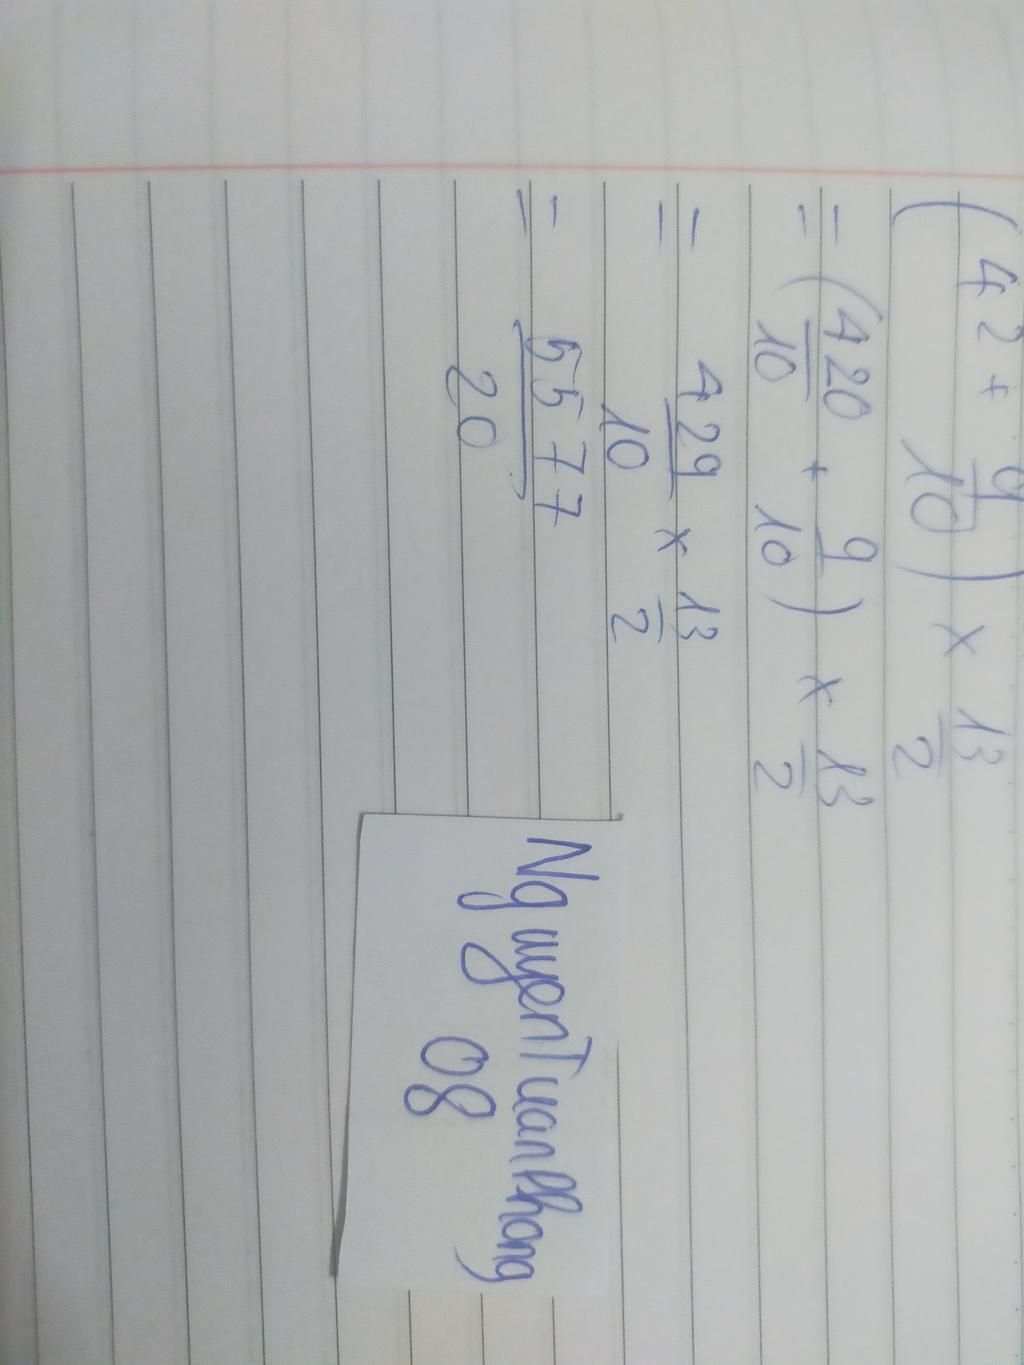 (42 + 9/10) x 13/2
= (420/10 + 9/10) x 13/2
= 429/10 x 13/2
= 5577/20
NguyenTuanPhong
08